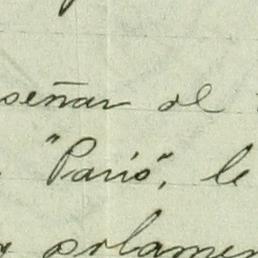 señar al
"Paris", le
solamen